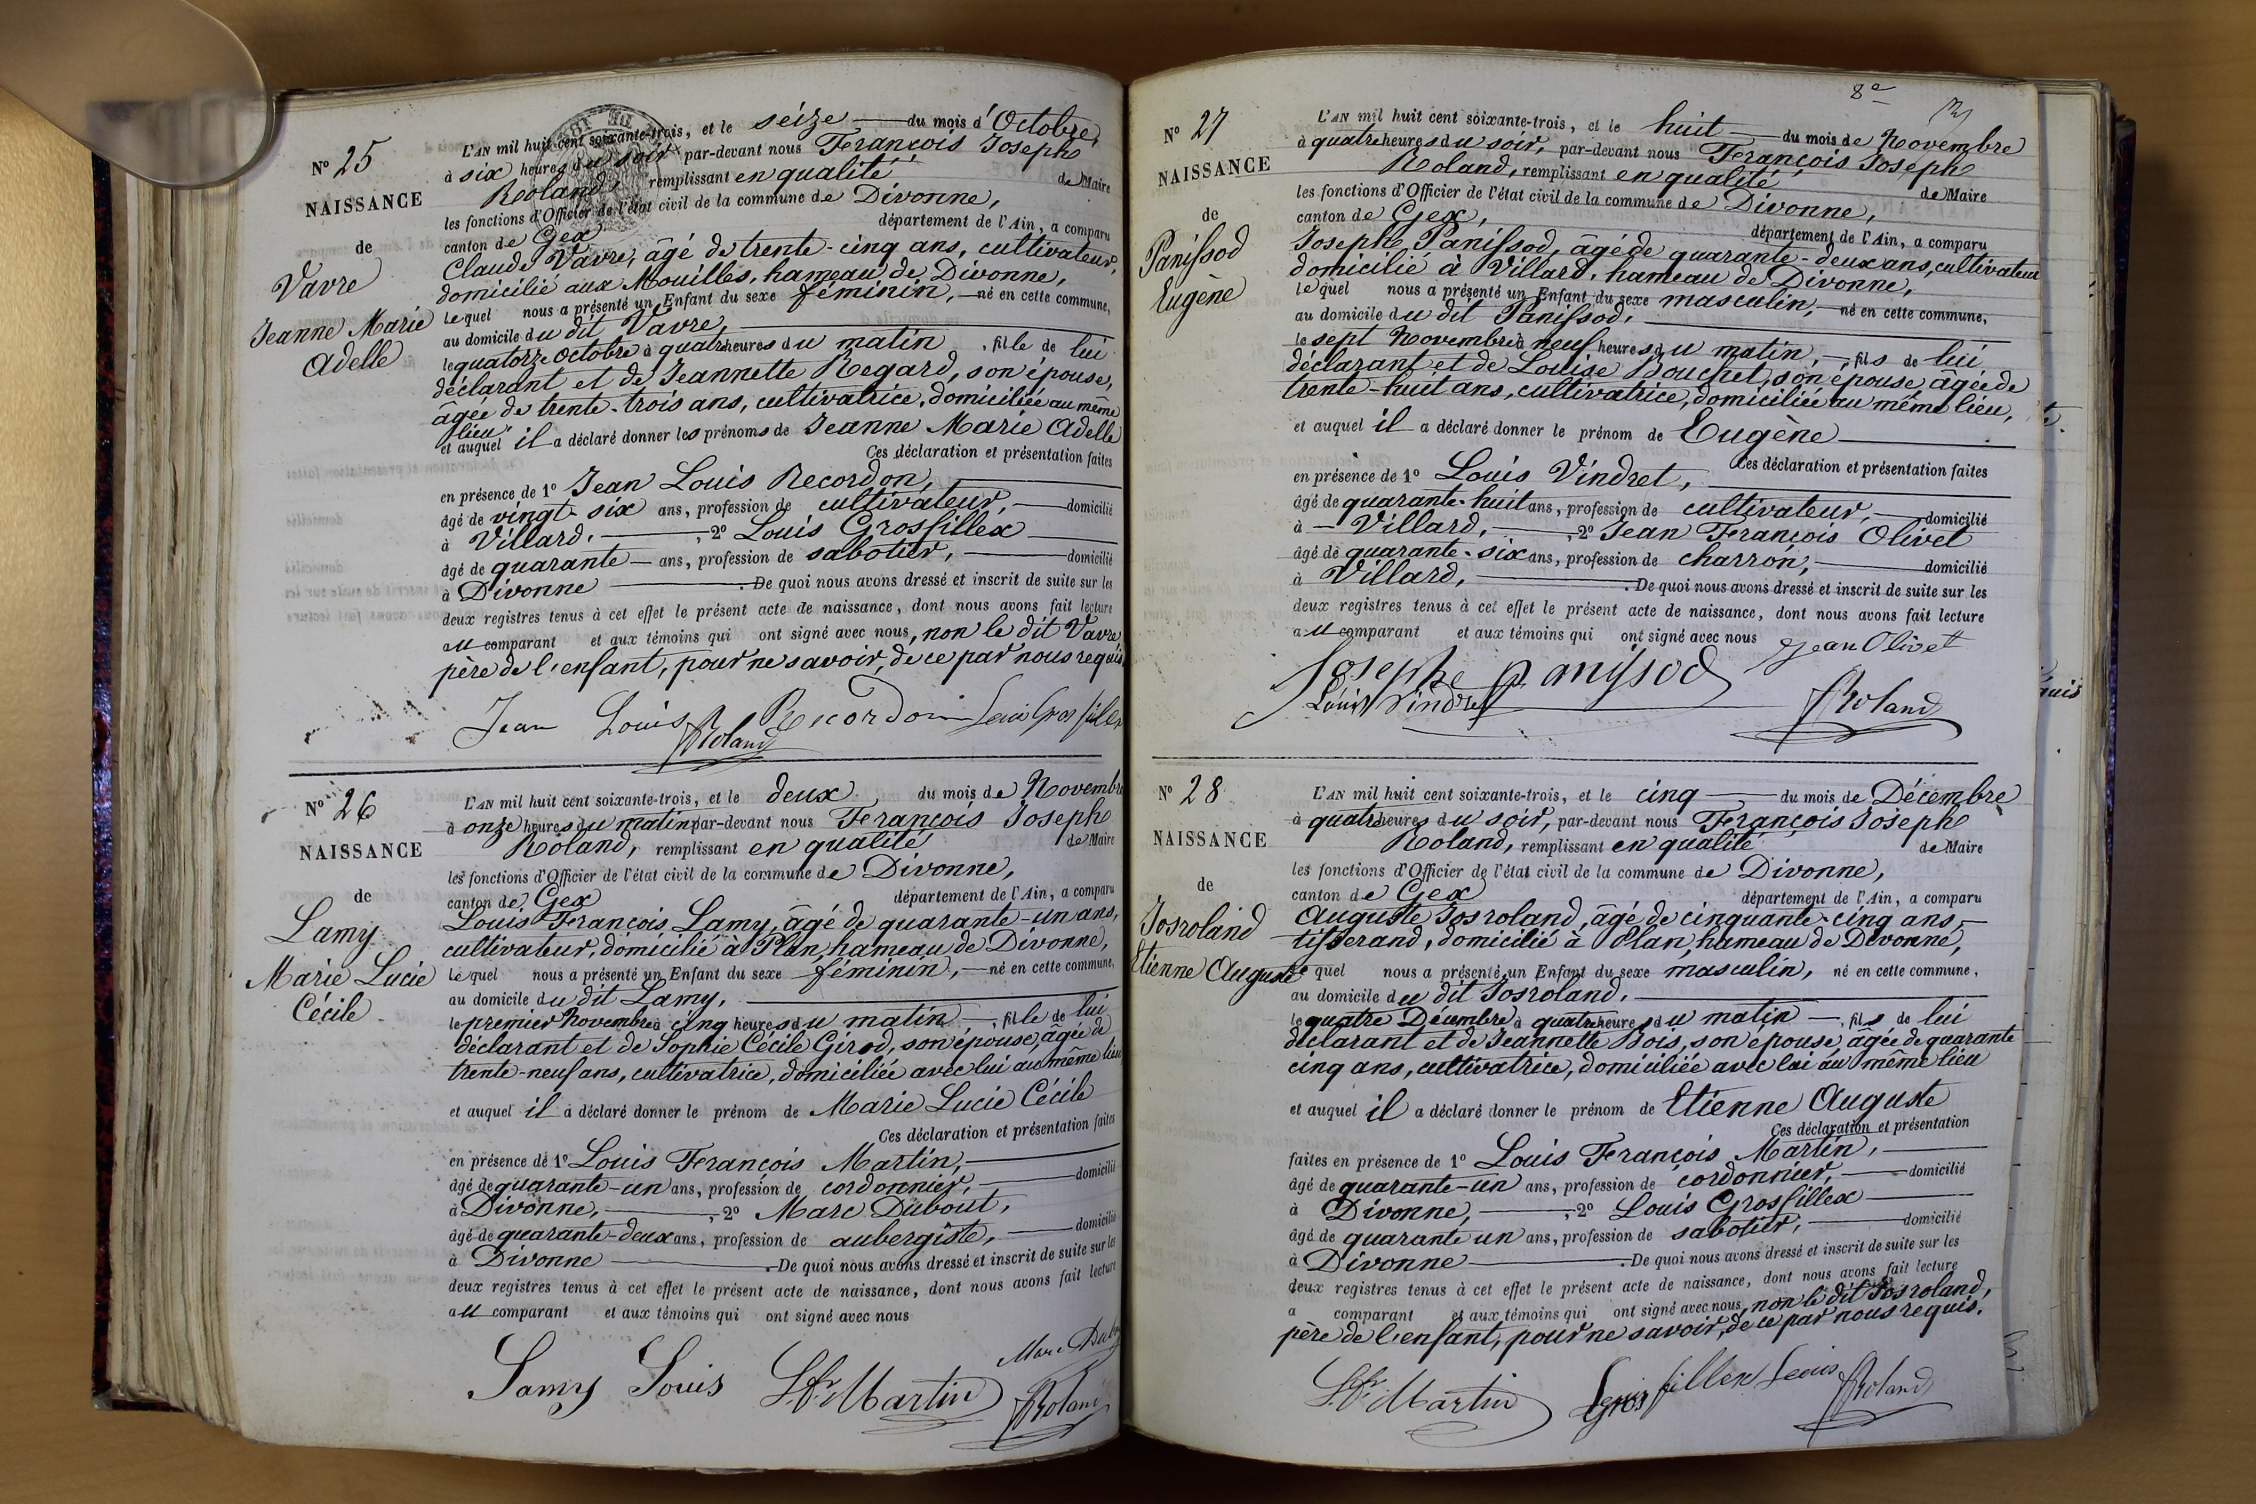 N° 25
NAISSANCE
de
Vavre
Jeanne Marie
Adelle
L'AN mil huit cent soixante-trois, et le seize du mois d'Octobre,
à six heures du soir par-devant nous François Joseph
Roland, remplissant en qualité de Maire
les fonctions d'Officier de l'état civil de la commune de Divonne,
canton de Gex département de l'Ain, a comparu
Claude Vavre, âgé de trente-cinq ans, cultivateur,
domicilié aux Mouilles, hameau de Divonne,
lequel nous a présenté un Enfant du sexe féminin, né en cette commune,
au domicile du dit Vavre,
le quatorze Octobre à quatre heures du matin, fille de lui
déclarant et de Jeannette Regard, son épouse,
âgée de trente-trois ans, cultivatrice, domiciliée au même
lieu
et auquel il a déclaré donner les prénoms de Jeanne Marie Adelle
Ces déclaration et présentation faites
en présence de 1° Jean Louis Recordon,
âgé de vingt-six ans, profession de cultivateur, domicilié
à Villard, 2° Louis Grosfillex
âgé de quarante ans, profession de sabotier, domicilié
à Divonne. De quoi nous avons dressé et inscrit de suite sur les
deux registres tenus à cet effet le présent acte de naissance, dont nous avons fait lecture
au comparant et aux témoins qui ont signé avec nous, non le dit Vavre
père de l'enfant, pour ne savoir, de ce par nous requis
Jean Louis Recordon Louis Grosfillex
Roland
N° 26
NAISSANCE
de
Lamy
Marie Lucie
Cécile
L'AN mil huit cent soixante-trois, et le deux du mois de Novembre
à onze heures du matin par-devant nous François Joseph
Roland, remplissant en qualité de Maire
les fonctions d'Officier de l'état civil de la commune de Divonne,
canton de Gex département de l'Ain, a comparu
Louis François Lamy, âgé de quarante-un ans,
cultivateur, domicilié à Plan, hameau de Divonne,
lequel nous a présenté un Enfant du sexe féminin, né en cette commune,
au domicile du dit Lamy,
le premier Novembre à cinq heures du matin, fille de lui
déclarant et de Sophie Cécile Girod, son épouse, âgée de
trente-neuf ans, cultivatrice, domiciliée avec lui au même lieu
et auquel il a déclaré donner le prénom de Marie Lucie Cécile
Ces déclaration et présentation faites
en présence de 1° Louis François Martin,
âgé de quarante-un ans, profession de cordonnier, domicilié
à Divonne, 2° Marc Dubout,
âgé de quarante-deux ans, profession de aubergiste, domicilié
à Divonne. De quoi nous avons dressé et inscrit de suite sur les
deux registres tenus à cet effet le présent acte de naissance, dont nous avons fait lecture
au comparant et aux témoins qui ont signé avec nous
Marc Dubo
Lamy Louis L. fs Martin Roland
8e
N° 27
NAISSANCE
de
Panissod
Eugène
L'AN mil huit cent soixante-trois, et le huit du mois de Novembre
à quatre heures du soir, par-devant nous François Joseph
Roland, remplissant en qualité de Maire
les fonctions d'Officier de l'état civil de la commune de Divonne,
canton de Gex, département de l'Ain, a comparu
Joseph Panissod, âgé de quarante-deux ans, cultivateur
domicilié à Villard, hameau de Divonne,
lequel nous a présenté un Enfant du sexe masculin, né en cette commune,
au domicile du dit Panissod,
le sept Novembre à neuf heures du matin, fils de lui
déclarant et de Louise Bouchet, son épouse, âgée de
trente-huit ans, cultivatrice, domiciliée au même lieu,
et auquel il a déclaré donner le prénom de Eugène
Ces déclaration et présentation faites
en présence de 1° Louis Vindret,
âgé de quarante-huit ans, profession de cultivateur, domicilié
à Villard, 2° Jean François Olivet
âgé de quarante-six ans, profession de charron, domicilié
à Villard, De quoi nous avons dressé et inscrit de suite sur les
deux registres tenus à cet effet le présent acte de naissance, dont nous avons fait lecture
au comparant et aux témoins qui ont signé avec nous
Jean Olivet
Joseph Panissod
Louis Vindret Roland
N° 28
NAISSANCE
de
Josroland
Etienne Auguste
L'AN mil huit cent soixante-trois, et le cinq du mois de Décembre
à quatre heures du soir, par-devant nous François Joseph
Roland, remplissant en qualité de Maire
les fonctions d'Officier de l'état civil de la commune de Divonne,
canton de Gex département de l'Ain, a comparu
Auguste Josroland, âgé de cinquante-cinq ans,
tisserand, domicilié à Plan, hameau de Divonne,
lequel nous a présenté un Enfant du sexe masculin, né en cette commune,
au domicile du dit Josroland,
le quatre Décembre à quatre heures du matin, fils de lui
déclarant et de Jeannette Bois, son épouse, âgée de quarante
cinq ans, cultivatrice, domiciliée avec lui au même lieu
et auquel il a déclaré donner le prénom de Etienne Auguste
Ces déclaration et présentation
faites en présence de 1° Louis François Martin,
âgé de quarante-un ans, profession de cordonnier, domicilié
à Divonne, 2° Louis Grosfillex
âgé de quarante un ans, profession de sabotier, domicilié
à Divonne. De quoi nous avons dressé et inscrit de suite sur les
deux registres tenus à cet effet le présent acte de naissance, dont nous avons fait lecture
a comparant et aux témoins qui ont signé avec nous, non le dit Josroland,
père de l'enfant, pour ne savoir, de ce par nous requis.
L. fs Martin Grosfillex Louis Roland